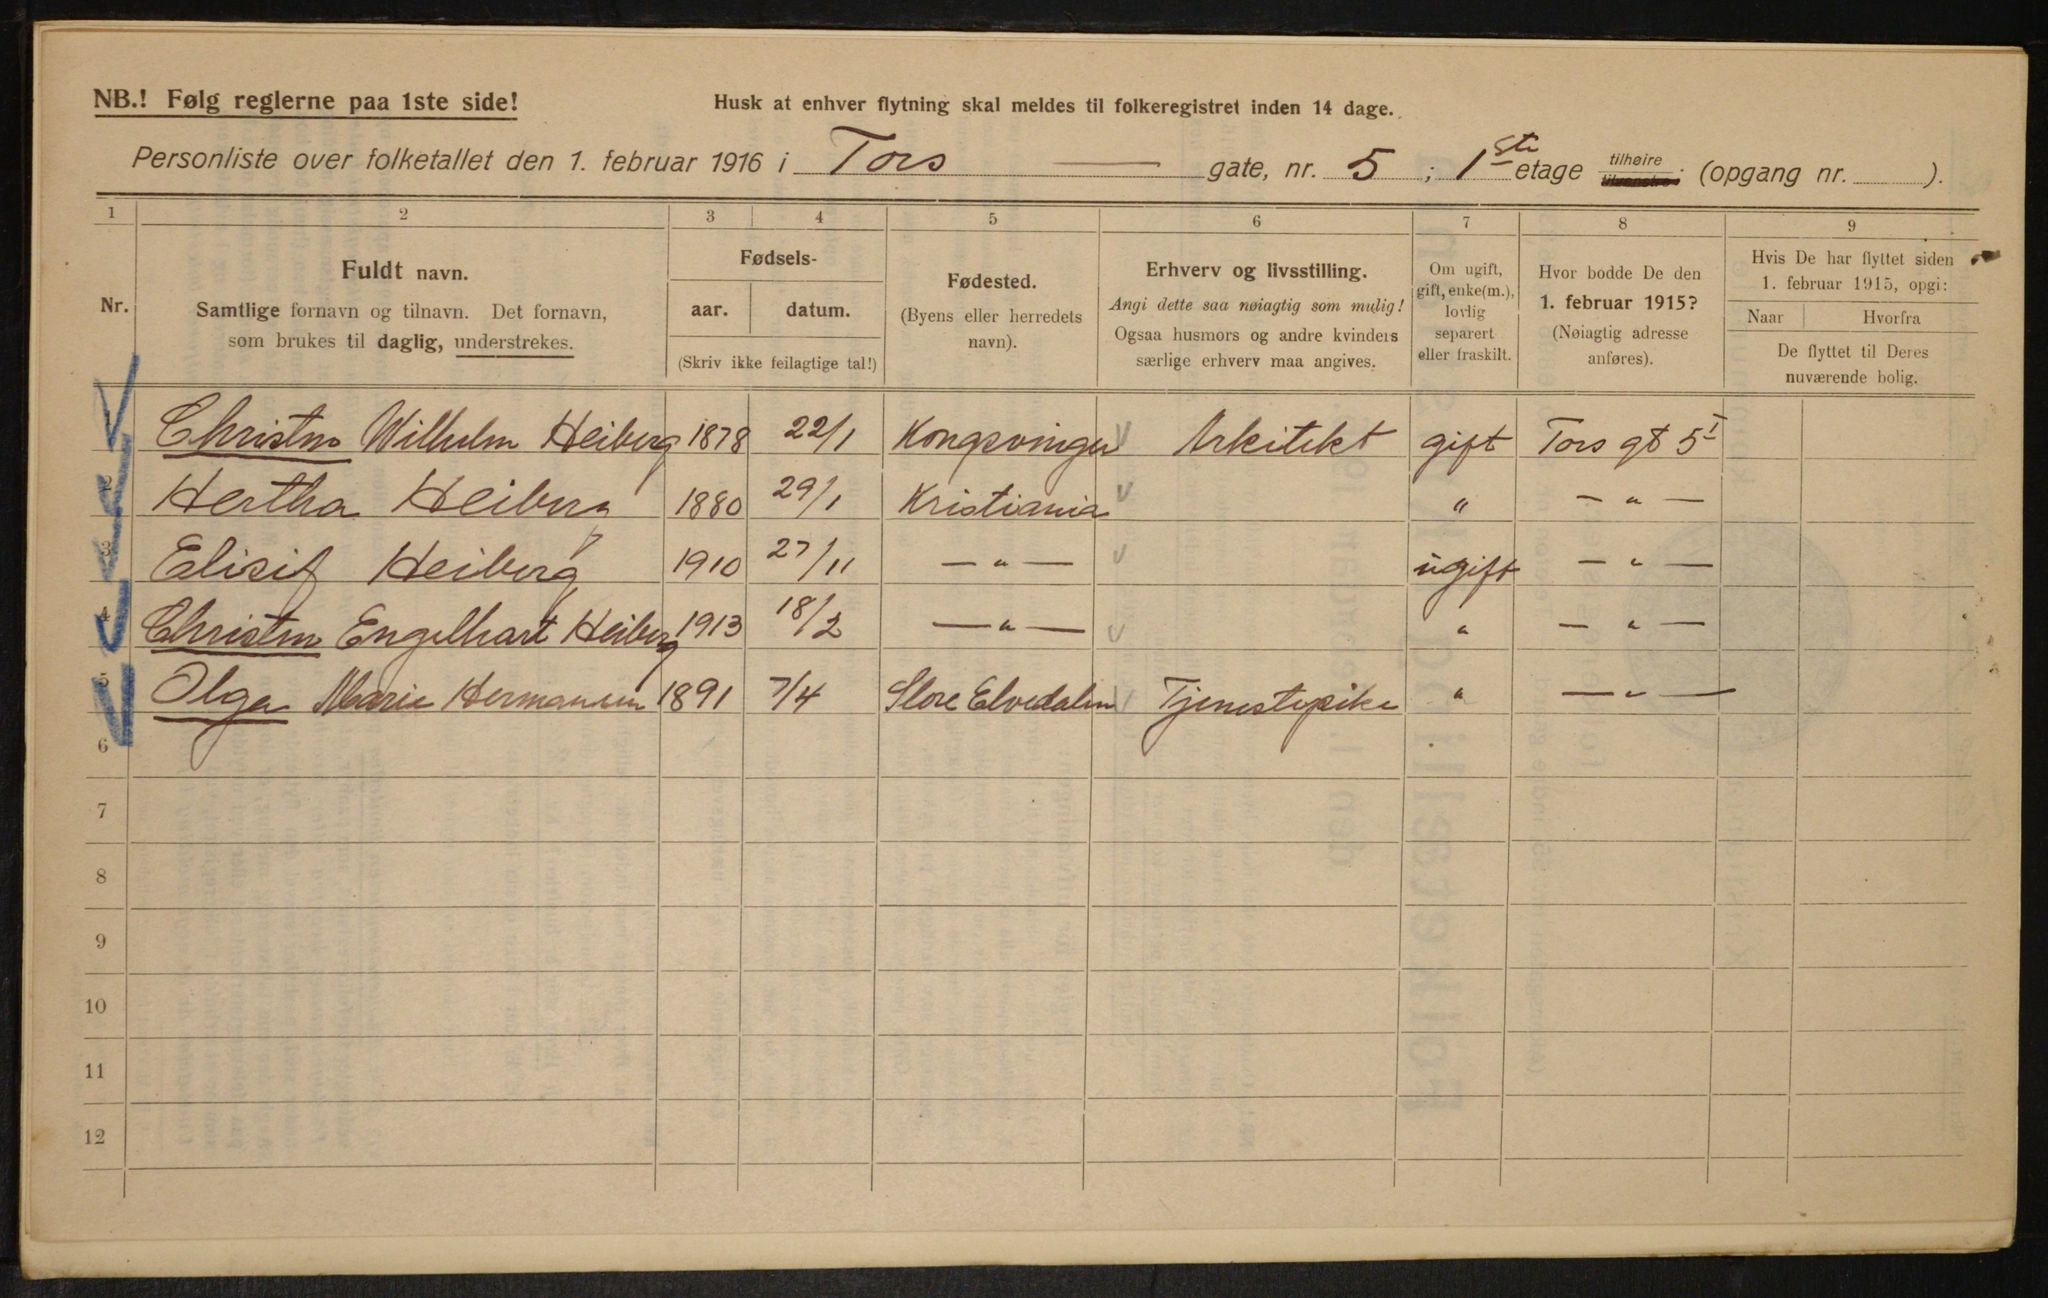 NB.! Følg reglerne paa 1ste side!
Husk at enhver flytning skal meldes til folkeregistret inden 14 dage.
Personliste over folketallet den 1. februar 1916 i Tors gate, nr. 5 ; 1ste etage tilhøire tilvenstre (opgang nr. ).
1 2 3 4 5 6 7 8 9
Nr.
Fuldt navn.
Samtlige fornavn og tilnavn. Det fornavn,
som brukes til daglig, understrekes.
Fødsels-
aar. datum.
(Skriv ikke feilagtige tal!)
Fødested.
(Byens eller herredets
navn).
Erhverv og livsstilling.
Angi dette saa nøiagtig som mulig!
Ogsaa husmors og andre kvinders
særlige erhverv maa angives.
Om ugift,
gift, enke(m.),
lovlig
separert
eller fraskilt.
Hvor bodde De den
1. februar 1915?
(Nøiagtig adresse
anføres).
Hvis De har flyttet siden
1. februar 1915, opgi:
Naar Hvorfra
De flyttet til Deres
nuværende bolig.
1 Christen Wilhelm Heiberg 1878 22/1 Kongsvinger Arkitekt gift Tors gt 5 I
2 Hertha Heiberg 1880 29/1 Kristiania " — " —
3 Elisif Heiberg 1910 27/11 — " — ugift — " —
4 Christen Engelhart Heiberg 1913 18/2 — " — " — " —
5 Olga Marie Hermansen 1891 7/4 Store Elvedalen Tjenestepike " — " —
6
7
8
9
10
11
12